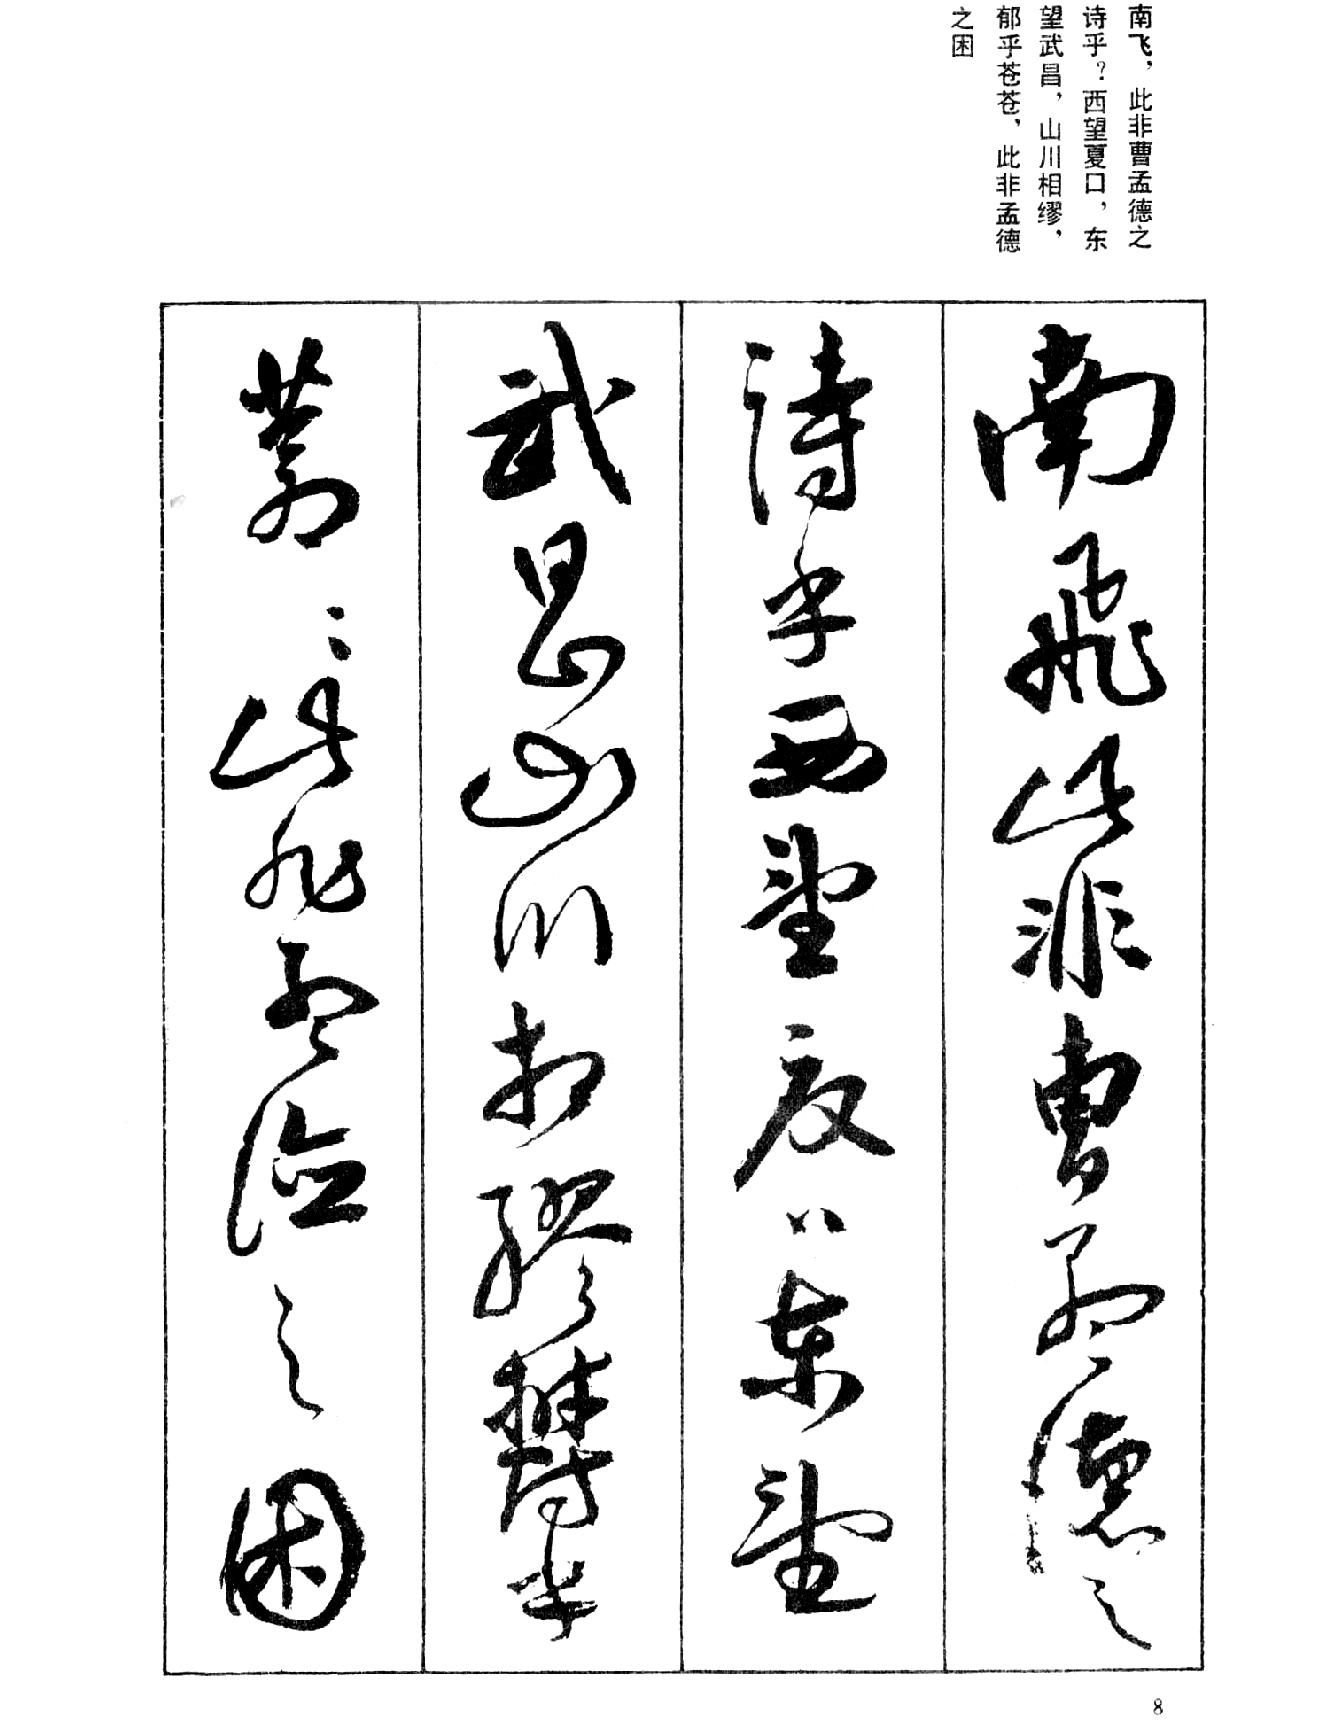 南飞，此非曹孟德之
诗乎？西望夏口，东
望武昌，山川相缪，
郁乎苍苍，此非孟德
之困
南飛此非曹孟德之
詩乎西望夏口東望
武昌山川相繆鬱乎
蒼〻此非孟德之困
8